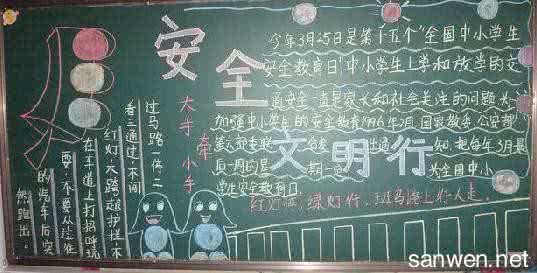 安全
大手牵小手
过马路一停、二
看三通过、不闯
红灯、不跨越护栏、不
在车道上打招呼玩
耍、不要从
的汽车后突
然跑出。
今年3月25日是第十五个"全国中小学生
安全教育日"中小学生上学和放学的交
通安全一直是家长和社会关注的问题为
加强中小学生的安全教育1996年2月国家教委、公安部
通知,把每年3月最
后一周的星期一 为全国中小
学生安全教育日。
文明行
红灯停,绿灯行,斑马路上行人走。
sanwen.net